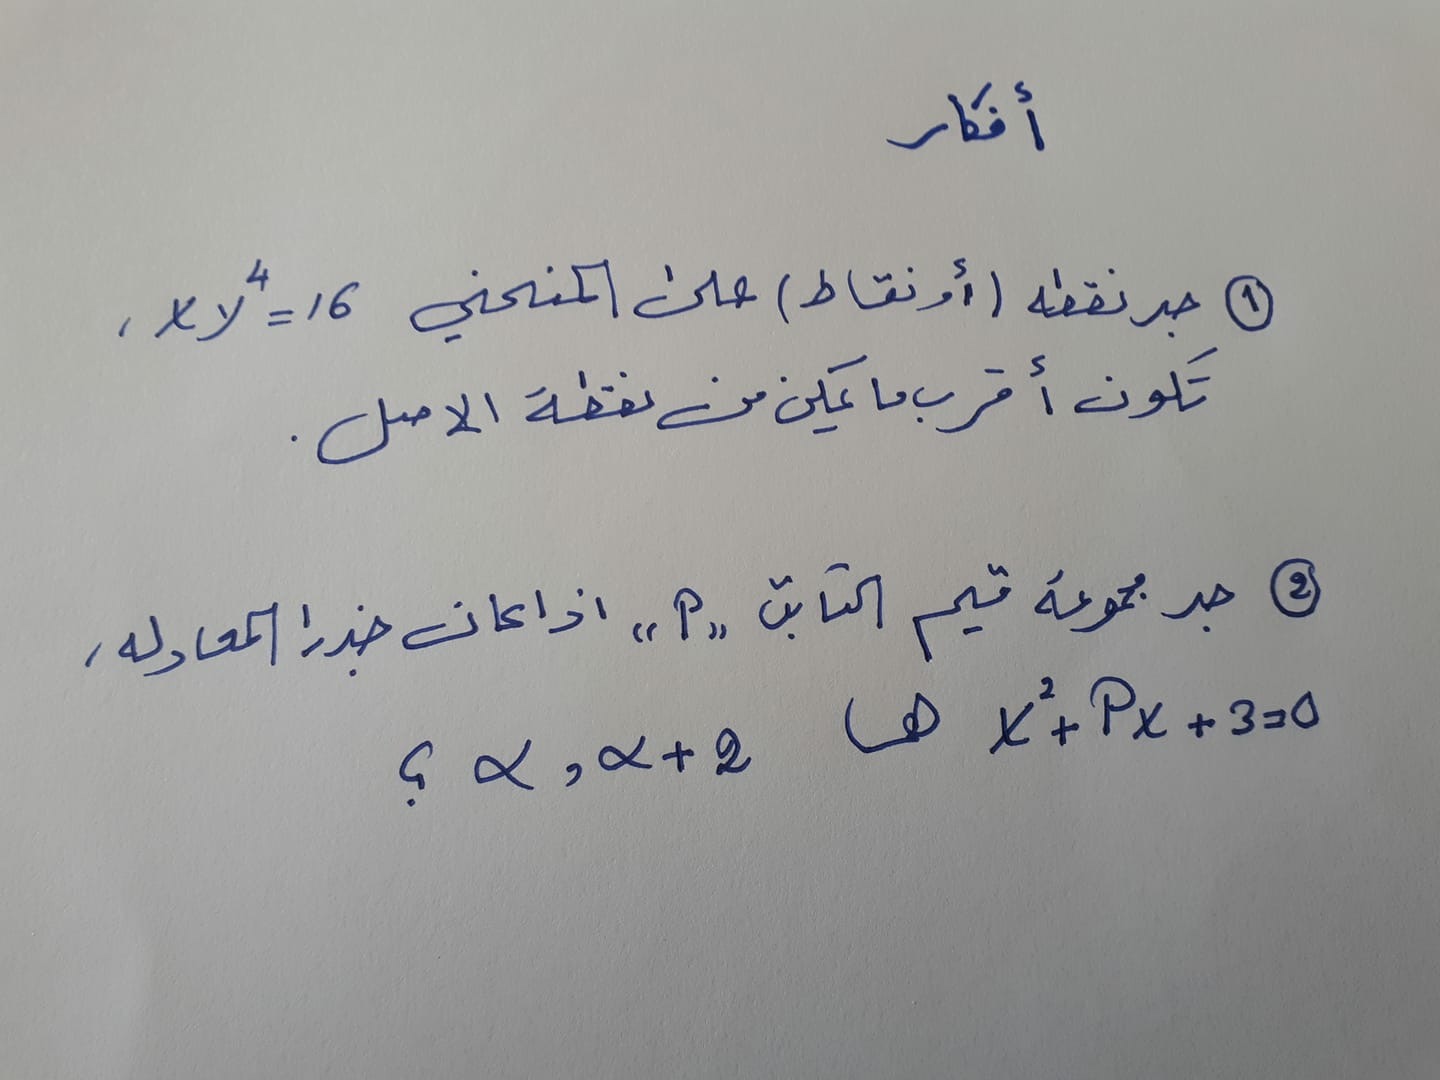 أفكار
① جد نقطه (أو نقاط) على المنحني xy⁴=16 ،
تكون أقرب ما يمكن من نقطة الاصل .
② جد مجموعة قيم الثابت "P" اذا كانت جذرا المعادله ،
x²+Px+3=0 هما α , α+2 ؟